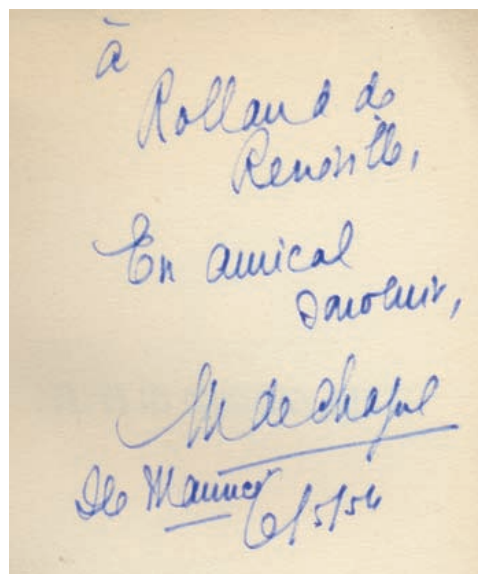 à
Rolland de
Renéville,
En amical
souvenir,
M de Chazal
Ile Maurice
6/5/54